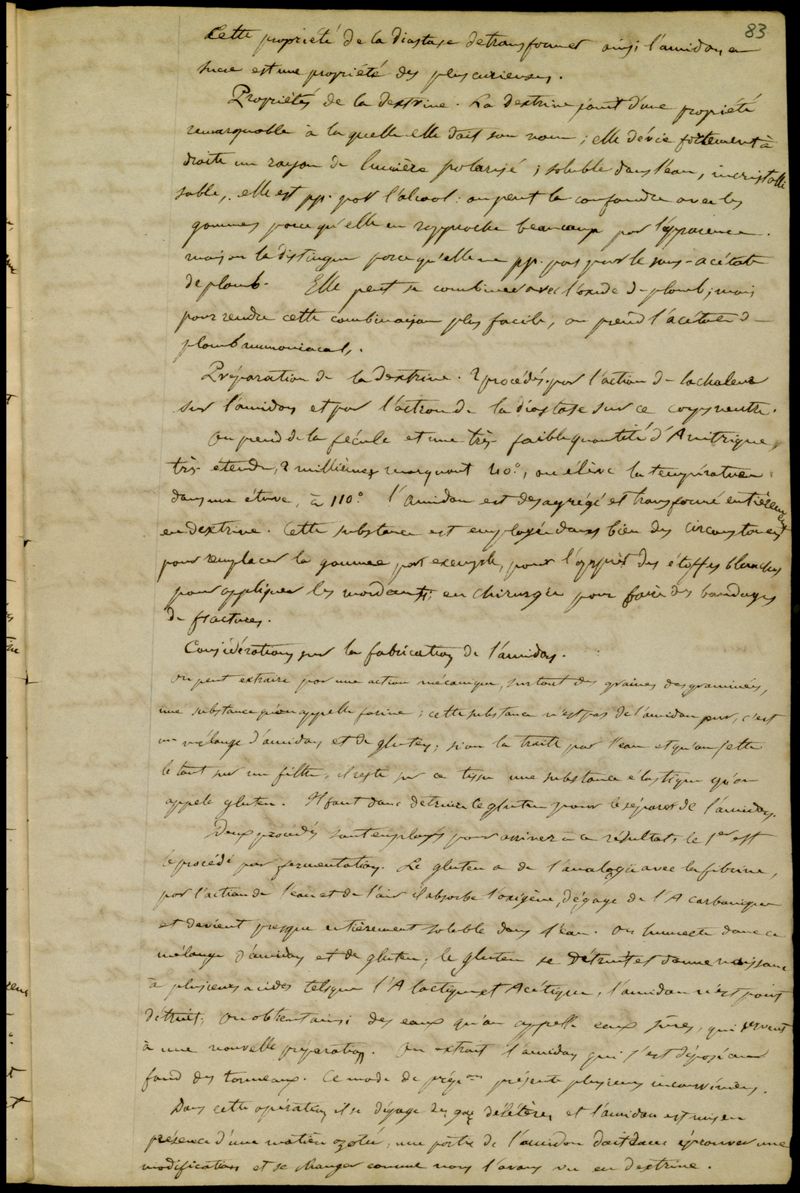 83
Cette propriété de la diastase de transformer ainsi l'amidon en
sucre est une propriété des plus curieuses.
Propriétés de la dextrine. La dextrine jouit d'une propriété
remarquable à laquelle elle doit son nom ; elle dévie fortement à
droite un rayon de lumière polarisé ; soluble dans l'eau, incristalli
sable, elle est pp. par l'alcool : on peut la confondre avec les
gommes parce qu'elle en rapproche beaucoup par l'apparence.
mais on la distingue parce qu'elle ne pp. pas par le sous-acétate
de plomb. Elle peut se combiner avec l'oxide de plomb ; mais
pour rendre cette combinaison plus facile, on prend l'acétate de
plomb ammoniacal.
Préparation de la dextrine. 2 procédés. par l'action de la chaleur
sur l'amidon et par l'action de la diastase sur ce corps neutre.
On prend de la fécule et une très faible quantité d'A nitrique,
très étendu, 2 millièmes marquant 40°, on élève la température
dans une étuve, à 110° l'amidon est desagrégé et transformé entièrement
en dextrine. Cette substance est employée dans bien des circonstances
pour remplacer la gomme par exemple, pour l'apprêt des étoffes blanches
pour appliquer les mordants ; en chirurgie pour faire des bandages
de fractures.
Considérations sur la fabrication de l'amidon.
On peut extraire par une action mécanique, surtout des graines des graminées,
une substance qu'on appelle farine ; cette substance n'est pas de l'amidon pur, c'est
un mélange d'amidon et de gluten ; si on la traite par l'eau et qu'on jette
le tout sur un filtre, il reste sur ce tissu une substance élastique qu'on
appele gluten. Il faut donc detruire le gluten pour le séparer de l'amidon.
Deux procédés sont employés pour arriver à ce résultat, le 1er est
le procédé par fermentation. Le gluten a de l'analogie avec la fibrine,
par l'action de l'eau et de l'air il absorbe l'oxigène, dégage de l'A carbonique
et devient presque entièrement soluble dans l'eau. On humecte donc ce
mélange d'amidon et de gluten ; le gluten se détruit et donne naissance
à plusieurs acides tels que l'A lactique et Acétique, l'amidon n'est point
détruit ; on obtient ainsi des eaux qu'on appelle eaux sûres, qui servent
à une nouvelle préparation. On extrait l'amidon qui s'est déposé au
fond des tonneaux. Ce mode de prépon présente plusieurs inconvéniens.
Dans cette opération il se dégage des gaz délétères et l'amidon est mis en
présence d'une matière azotée, une partie de l'amidon doit donc éprouver une
modification et se changer comme nous l'avons vu en dextrine.